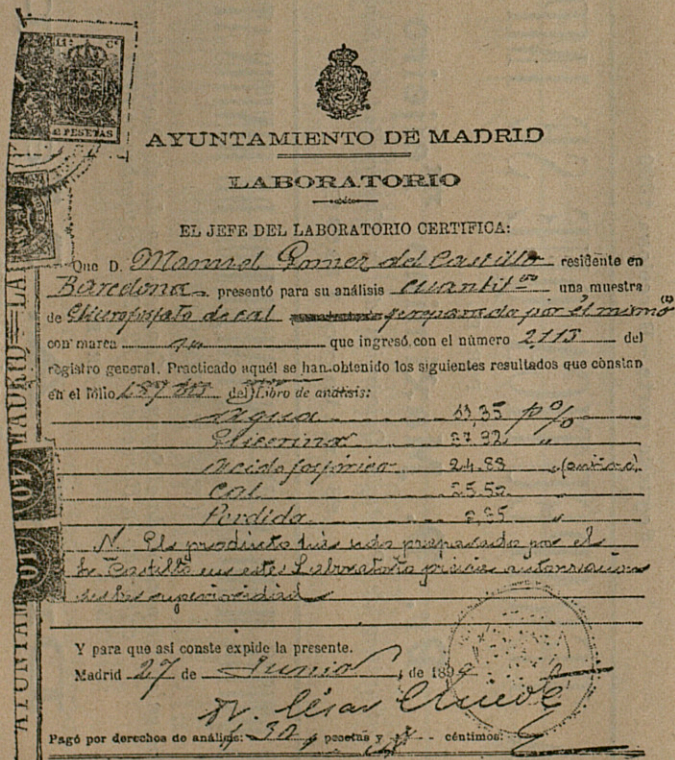 2 PESETAS
AYUNTAMIENTO DE MADRID
LABORATORIO
EL JEFE DEL LABORATORIO CERTIFICA:
Que D. Manuel Gomez del Castillo residente en
Barcelona presentó para su análisis cuantit una muestra
de Glicerofosfato de cal preparado por él mismo
con marca que ingresó con el número 2115 del
registro general. Practicado aquél se han obtenido los siguientes resultados que constan
en el folio del Libro de análisis:
Agua p %
Glicerina
Acido fosfórico 24.88
Cal 25.50
Perdida
N. El producto ha sido preparado por el
Sr Castillo en este Laboratorio previa autorización
de la superioridad
Y para que así conste expide la presente.
Madrid 27 de Junio de 189
Dr. César Chicote
Pagó por derechos de análisis: 30 pesetas y céntimos: